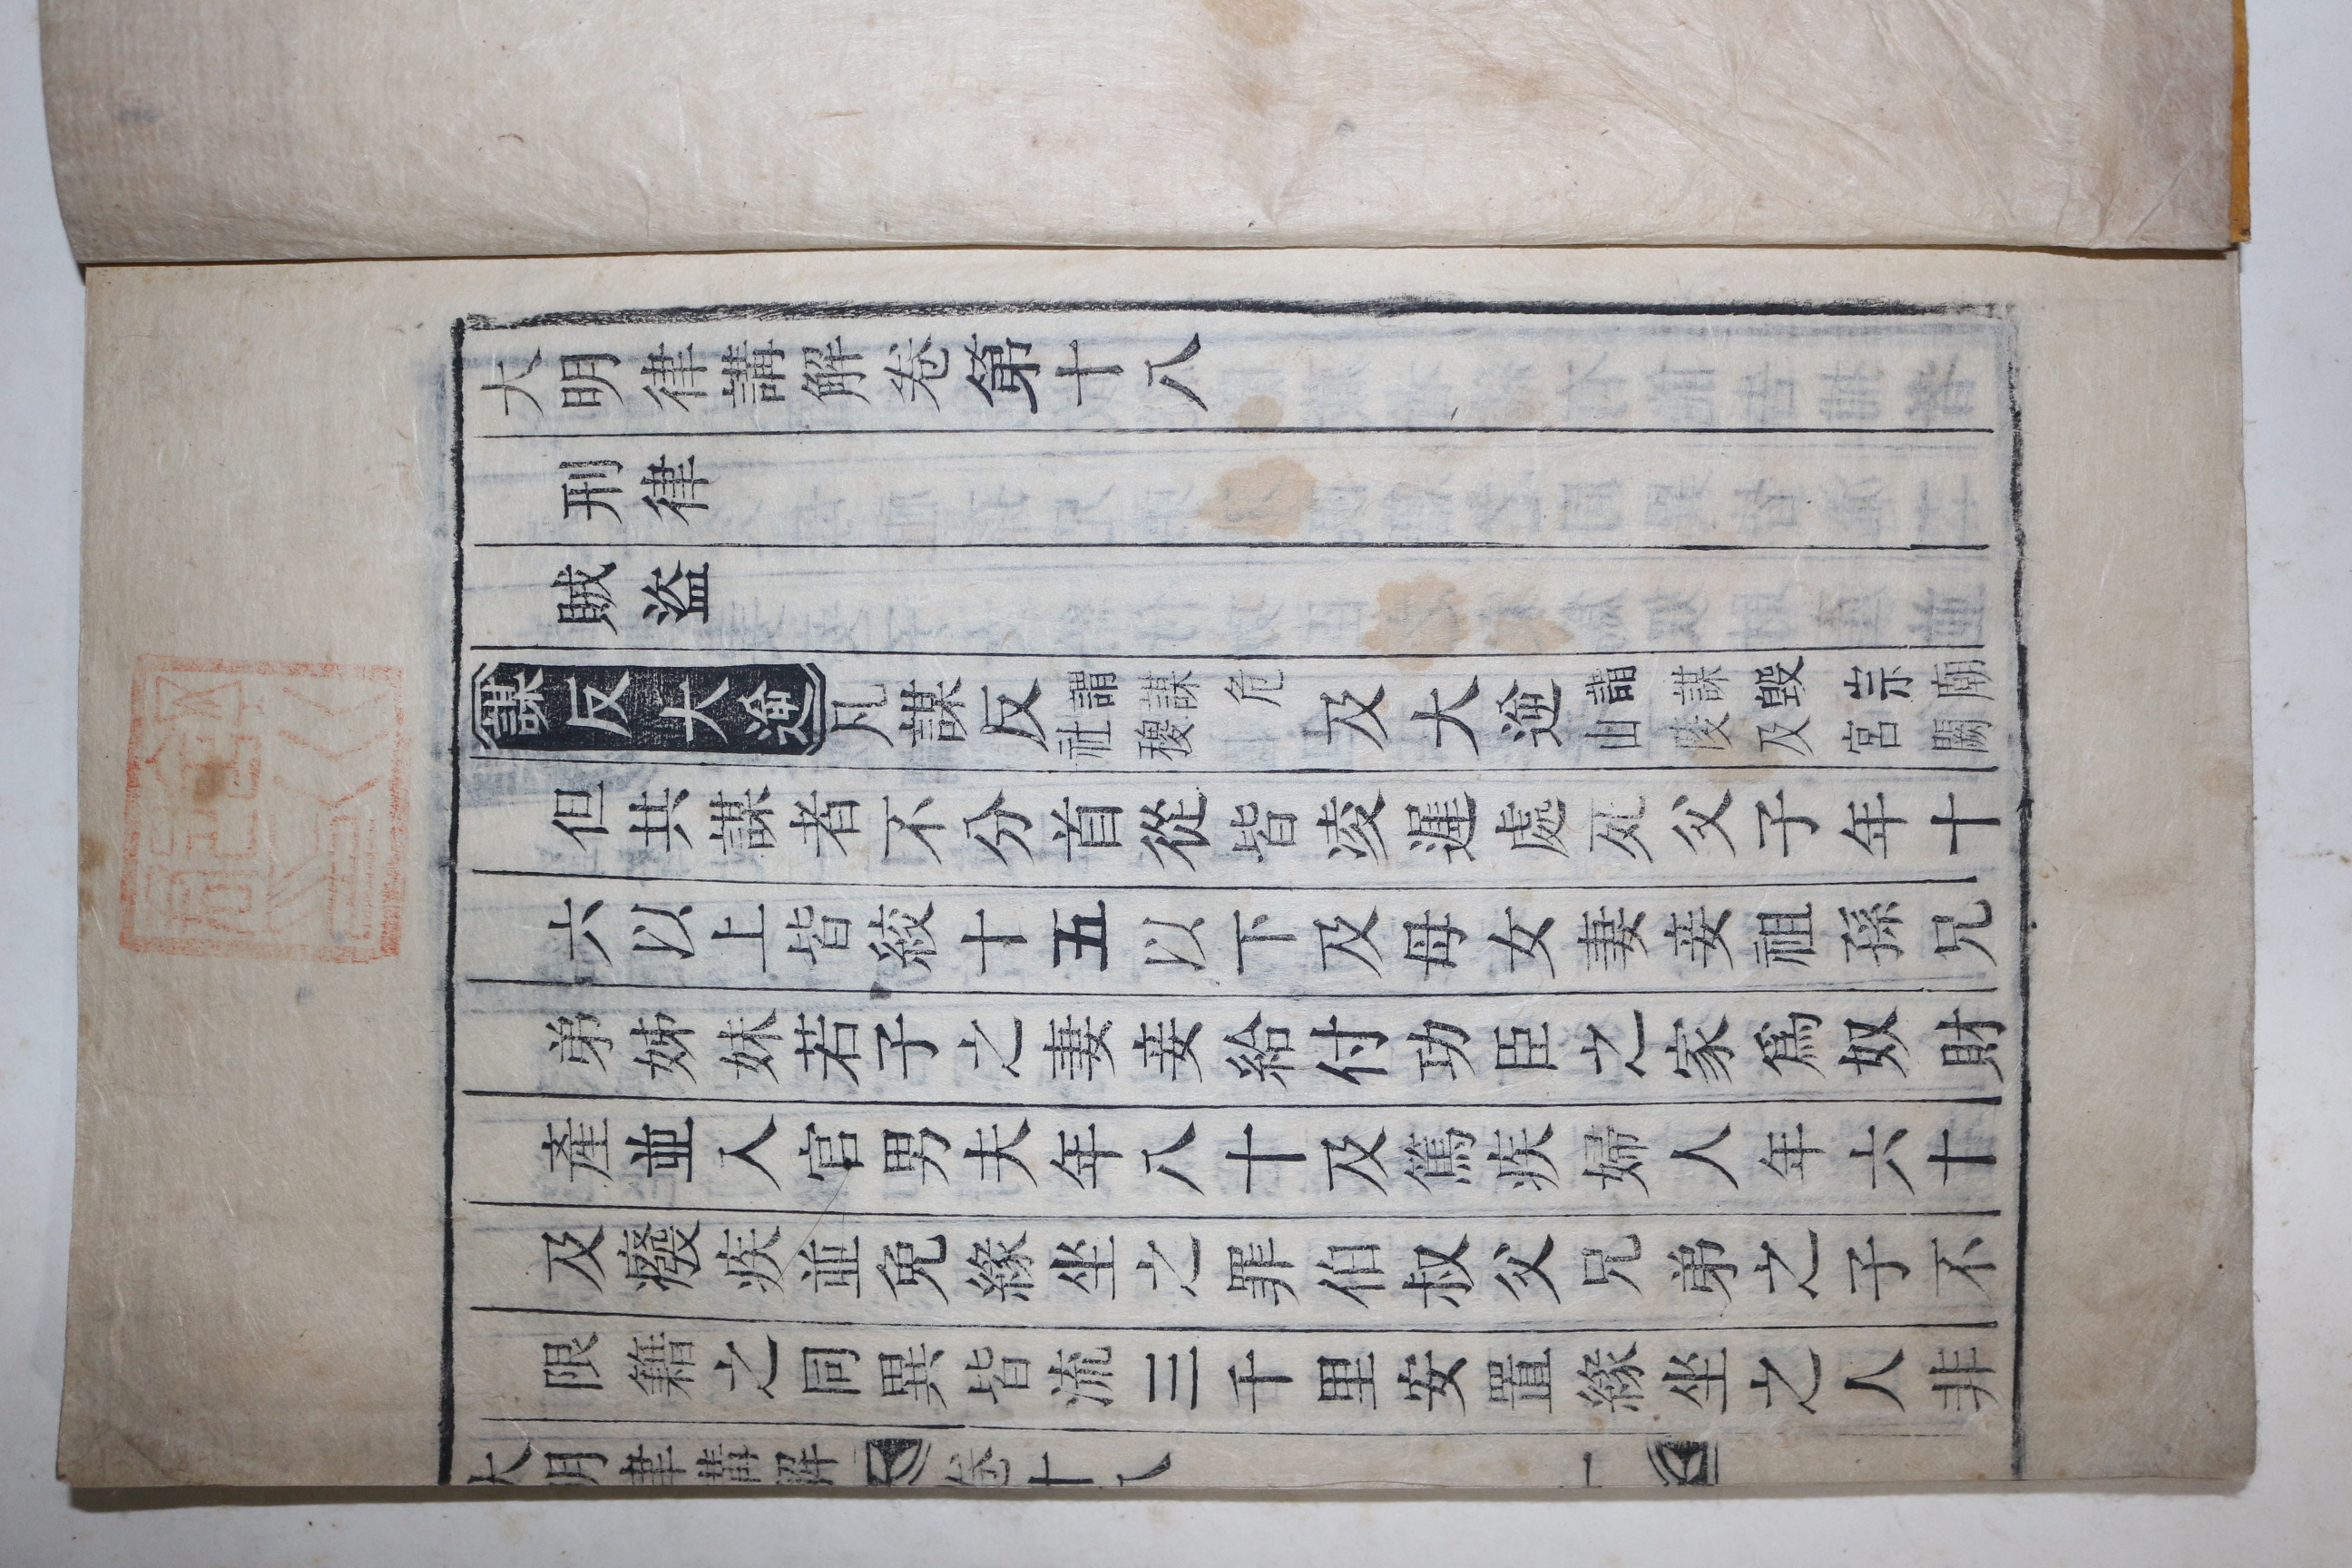 大明律講解卷第十八
刑律
賊盜
謀反大逆凡謀反謂謀危社稷及大逆謂謀毀宗廟山陵及宮闕
但共謀者不分首從皆凌遲處死父子年十
六以上皆絞十五以下及母女妻妾祖孫兄
弟姊妹若子之妻妾給付功臣之家爲奴財
產並入官男夫年八十及篤疾婦人年六十
及癈疾並免緣坐之罪伯叔父兄弟之子不
限籍之同異皆流三千里安置緣坐之人非
大明律講解 卷十八 一